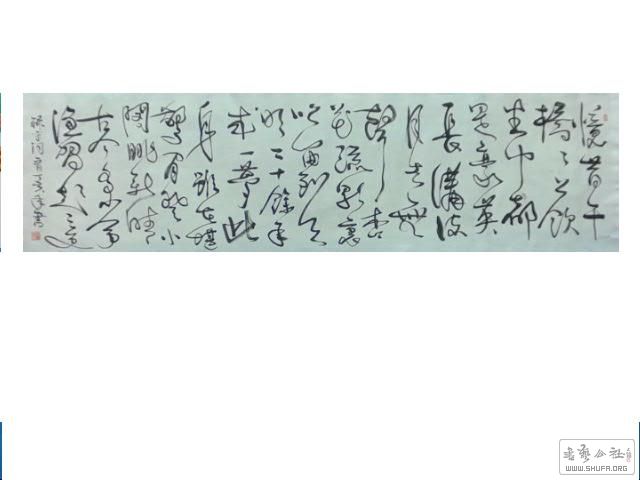 憶昔午
橋〻上飲
坐中都
是豪英
長溝流
月去無
聲杏
花疏影裏
吹笛到天
明二十餘年
成一夢此
身雖在堪
驚閒登小
閣眺新晴
古今多少事
漁唱起三更
丁亥年書
書藝公社
WWW.SHUFA.ORG